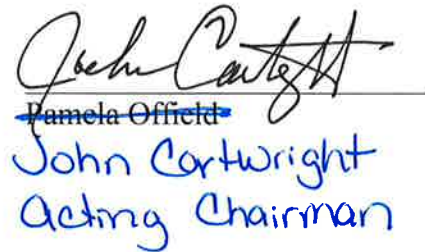 John Cartwright
Pamela Offield
John Cartwright
acting Chairman